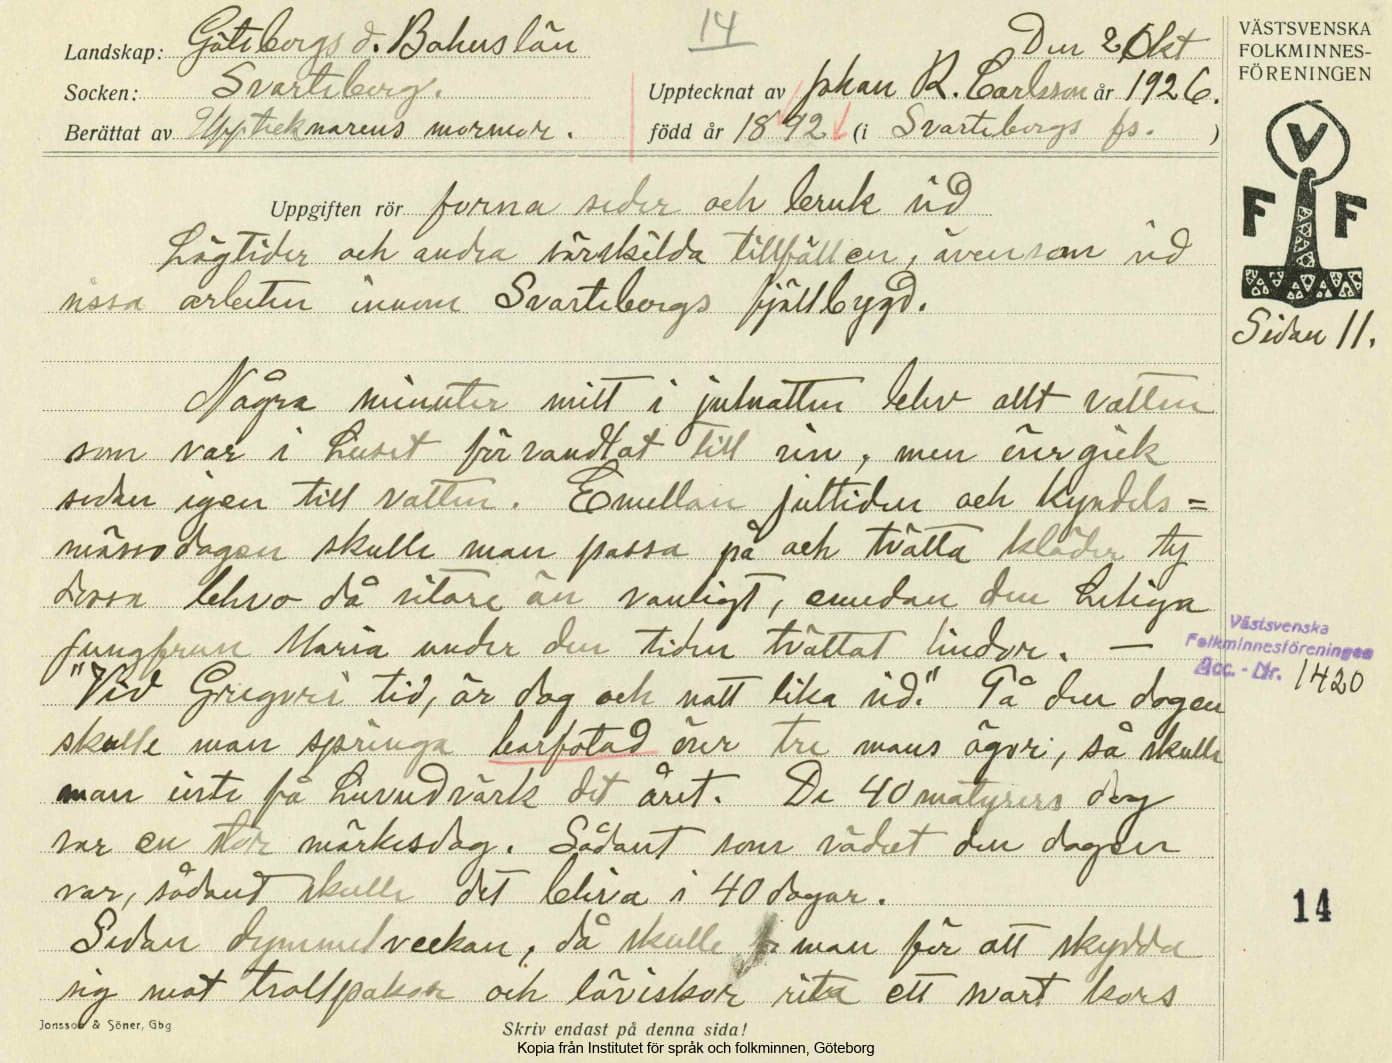 14
Landskap: Göteborgs o. Bohuslän
Den 2 Okt
Socken: Svarteborg.
Upptecknat av Johan R. Carlsson år 1926.
Berättat av Upptecknarens mormor.
född år 1892 (i Svarteborgs fs. )
VÄSTSVENSKA
FOLKMINNES-
FÖRENINGEN
V
F F
Sidan 11.
Uppgiften rör forna seder och bruk vid
högtider och andra särskilda tillfällen, ävensom vid
vissa arbeten inom Svarteborgs fjällbygd.
Några minuter mitt i julnatten blev allt vatten
som var i huset förvandlat till vin, men övergick
sedan igen till vatten. Emellan jultiden och kyndels=
mässodagen skulle man passa på och tvätta kläder ty
dessa blevo då vitare än vanligt, emedan den heliga
jungfrun Maria under den tiden tvättat lindor. —
"Vid Gregori tid, är dag och natt lika vid." På den dagen
skulle man springa barfotad över tre mans ägor, så skulle
man inte få huvudvärk det året. De 40 matyrers dag
var en stor märkesdag. Sådant som vädret den dagen
var, sådant skulle det bliva i 40 dagar.
Sedan dymmelveckan, då skulle man för att skydda
sig mot trollpakor och läviskor rita ett svart kors
Västsvenska
Folkminnesföreningen
Acc. - Nr. 1420
14
Jonsson & Söner, Gbg
Skriv endast på denna sida!
Kopia från Institutet för språk och folkminnen, Göteborg